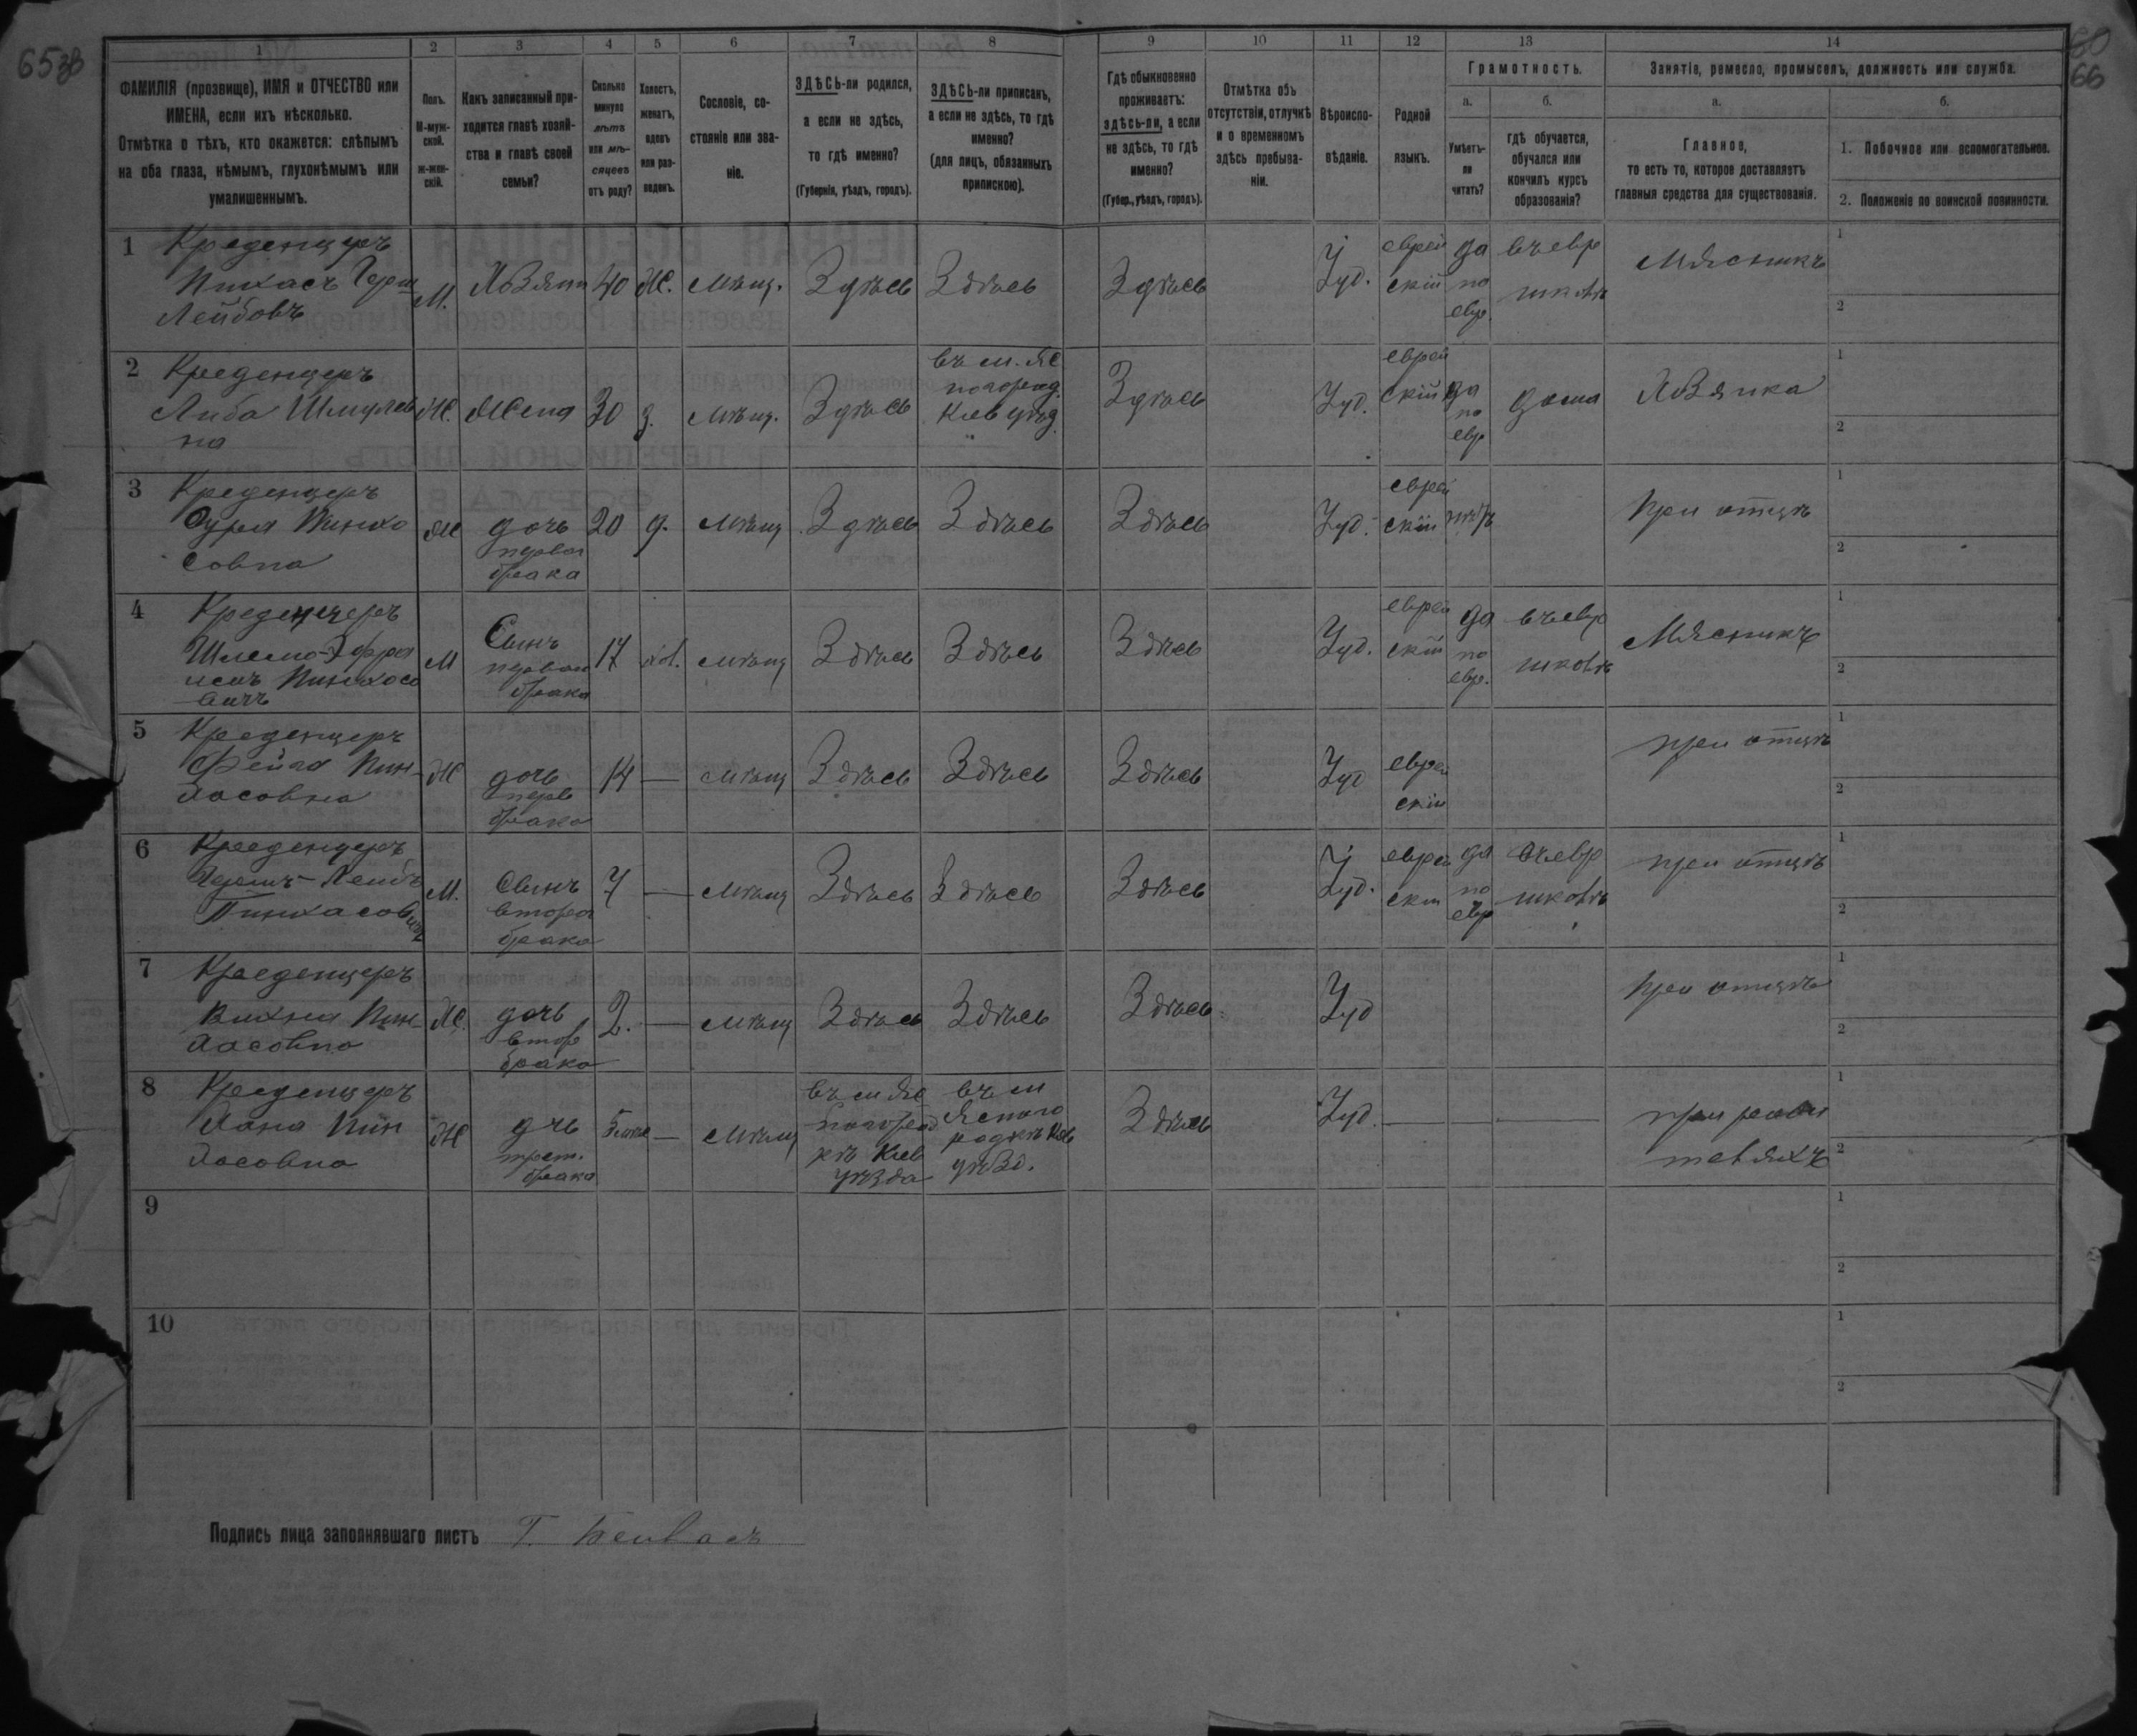 65 зв
60
66
1 2 3 4 5 6 7 8 9 10 11 12 13 14
ФАМИЛІЯ (прозвище), ИМЯ и ОТЧЕСТВО или
ИМЕНА, если ихъ нѣсколько.
Отмѣтка о тѣхъ, кто окажется: слѣпымъ
на оба глаза, нѣмымъ, глухонѣмымъ или
умалишеннымъ.
Полъ.
М-муж-
ской.
Ж-жен-
скій.
Какъ записанный при-
ходится главѣ хозяй-
ства и главѣ своей
семьи?
Сколько
минуло
лѣтъ
или мѣ-
сяцевъ
отъ роду?
Холостъ,
женатъ,
вдовъ
или раз-
веденъ.
Сословіе, со-
стояніе или зва-
ніе.
ЗДѢСЬ-ли родился,
а если не здѣсь,
то гдѣ именно?
(Губернія, уѣздъ, городъ).
ЗДѢСЬ-ли приписанъ,
а если не здѣсь, то гдѣ
именно?
(для лицъ, обязанныхъ
припискою).
Гдѣ обыкновенно
проживаетъ:
здѣсь-ли, а если
не здѣсь, то гдѣ
именно?
(Губер., уѣздъ, городъ).
Отмѣтка объ
отсутствіи, отлучкѣ
и о временномъ
здѣсь пребыва-
ніи.
Вѣроиспо-
вѣданіе.
Родной
языкъ.
Грамотность.
а.
Умѣетъ-
ли
читать?
б.
гдѣ обучается,
обучался или
кончилъ курсъ
образованія?
Занятіе, ремесло, промыселъ, должность или служба.
а.
Главное,
то есть то, которое доставляетъ
главныя средства для существованія.
б.
1. Побочное или вспомогательное.
2. Положеніе по воинской повинности.
1 Креденцеръ
Пинхасъ Герш
Лейбовъ
М. Хозяин 40 Ж. мѣщ. Здѣсь Здѣсь Здѣсь Іуд.
еврей
скій
да
по
евр.
въ евр
школѣ
Мясникъ
1
2
2 Креденцеръ
Либа Шмулев
на
Ж. Жена 30 з. мѣщ. Здѣсь
въ м. Яс
ногород.
Кіев уѣзд.
Здѣсь Іуд.
еврей
скій
да
по
евр
дома Хозяика
1
2
3 Креденцеръ
Сура Пинхо
совна
Ж
дочь
перваг
брака
20 д. мѣщ Здѣсь Здѣсь Здѣсь Іуд.
еврей
скій
нѣтъ
при отцѣ
1
2
4 Креденцеръ
Шлемо-Эфра
имъ Пинхосо
вичъ
М
Сынъ
перваго
брака
17 хол. мѣщ Здѣсь Здѣсь Здѣсь Іуд.
еврей
скій
да
по
евр.
въ евр
школѣ
Мясникъ
1
2
5 Креденцеръ
Фейга Пин-
хасовна
Ж
дочь
перв
брака
14 — мѣщ Здѣсь Здѣсь Здѣсь Іуд
еврей
скій
при отцѣ
1
2
6 Креденцеръ
Гершъ-Лейбъ
Пинхасович
М.
Сынъ
второг
брака
7 — мѣщ Здѣсь Здѣсь Здѣсь Іуд.
еврей
скій
да
по
евр
въ евр
школѣ
при отцѣ
1
2
7 Креденцеръ
Вихна Пин-
хасовна
Ж.
дочь
втор
брака
2. — мѣщ Здѣсь Здѣсь Здѣсь Іуд
при отцѣ
1
2
8 Креденцеръ
Хана Пин
хасовна
Ж
дчь
трет.
брака
— мѣщ
въ м Яс
ногород
кѣ Кіев
уѣзда
въ м
Ясного
родкѣ Кіев
уѣзд.
Здѣсь Іуд. — — —
при роди
теляхъ
1
2
9
1
2
10
1
2
Подпись лица заполнявшаго листъ